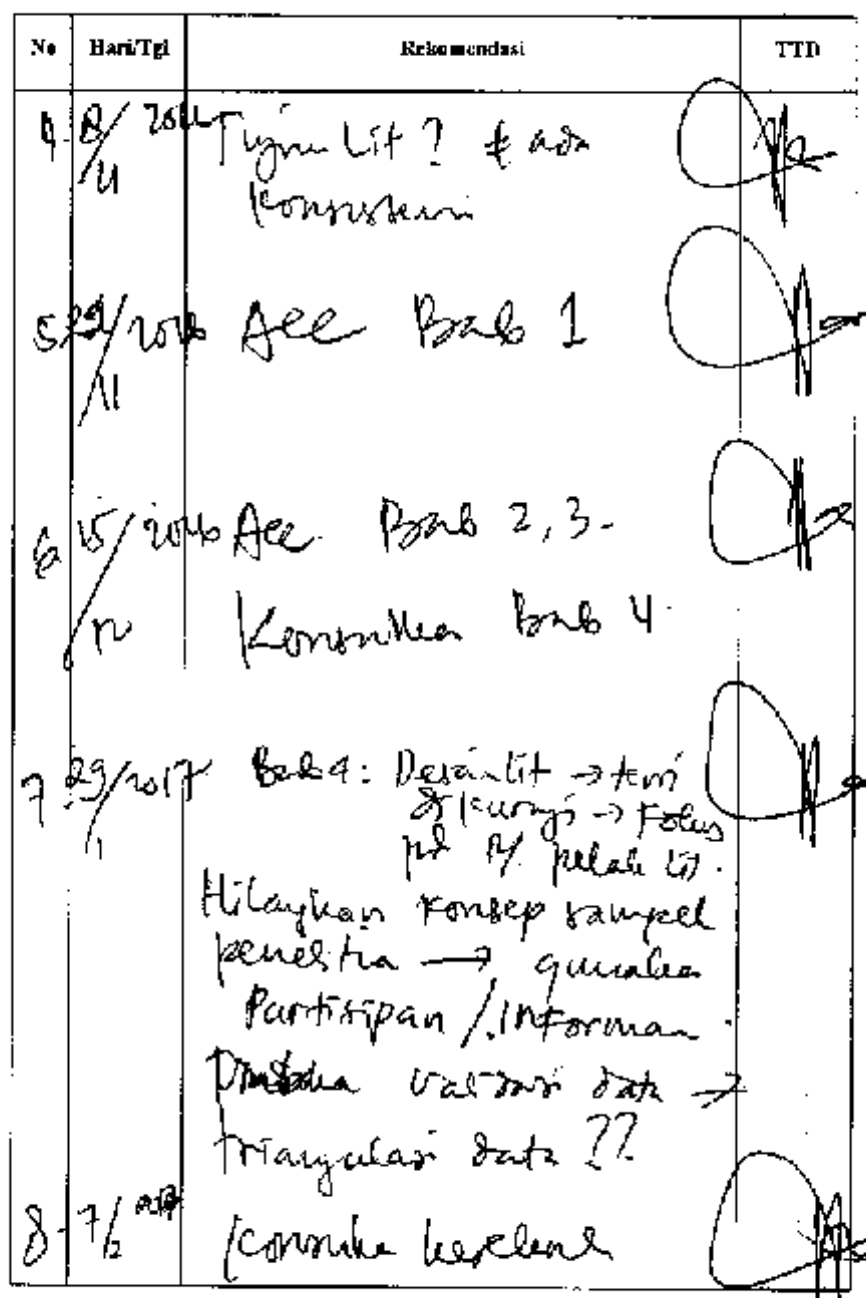 No Hari/Tgl Rekomendasi TTD
4 8/11 2016 Tujuan Lit? ada
Konsistensi
5 29/11 2016 Acc Bab 1
6 15/12 2016 Acc Bab 2, 3.
Konsulkan Bab 4.
7 29/1 2017 Bab 4: Desain Lit → teori
dikurangi → Fokus
pd pelak Lit.
Hilangkan konsep sampel
penelitian → gunakan
Partisipan / Informan.
validasi data →
triangulasi data ??
8- 7/2 2017